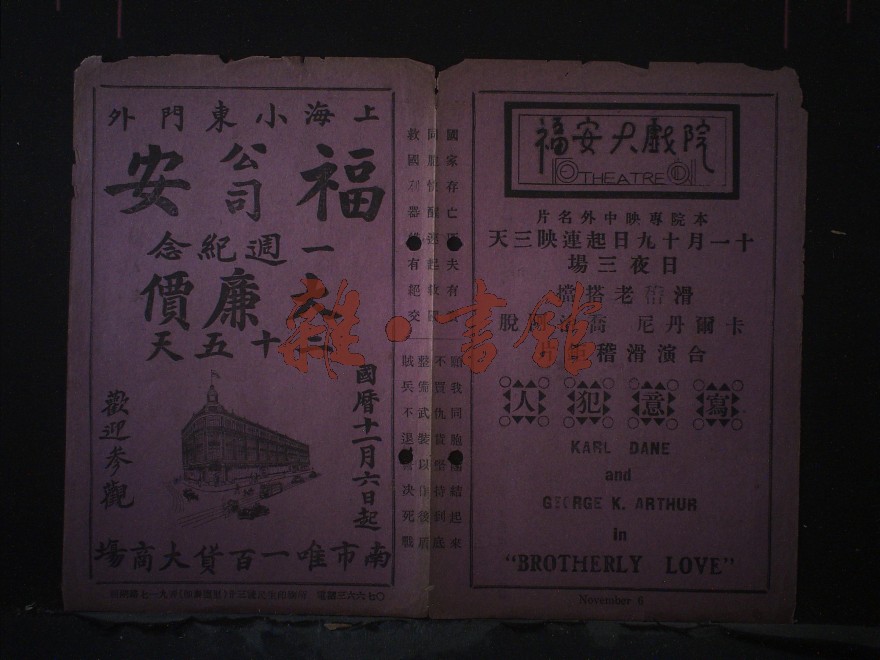 上海小東門外
福安公司
一週紀念
大廉價
二十五天
國曆十一月六日起
歡迎參觀
南市唯一百貨大商場
國家存亡夫有
同胞快醒速起救國
救國利器有絕交
願我同胞團結起來
不買仇貨堅持到底
整備武裝以作後盾
賊兵不退誓决死戰
福安大戲院
THEATRE
本院專映中外名片
十一月十九日起連映三天
日夜三場
滑稽老搭擋
卡爾丹尼 喬治脫
合演滑稽片
寫意犯人
KARL DANE
and
GEORGE K. ARTHUR
in
"BROTHERLY LOVE"
November 6
雜·書館